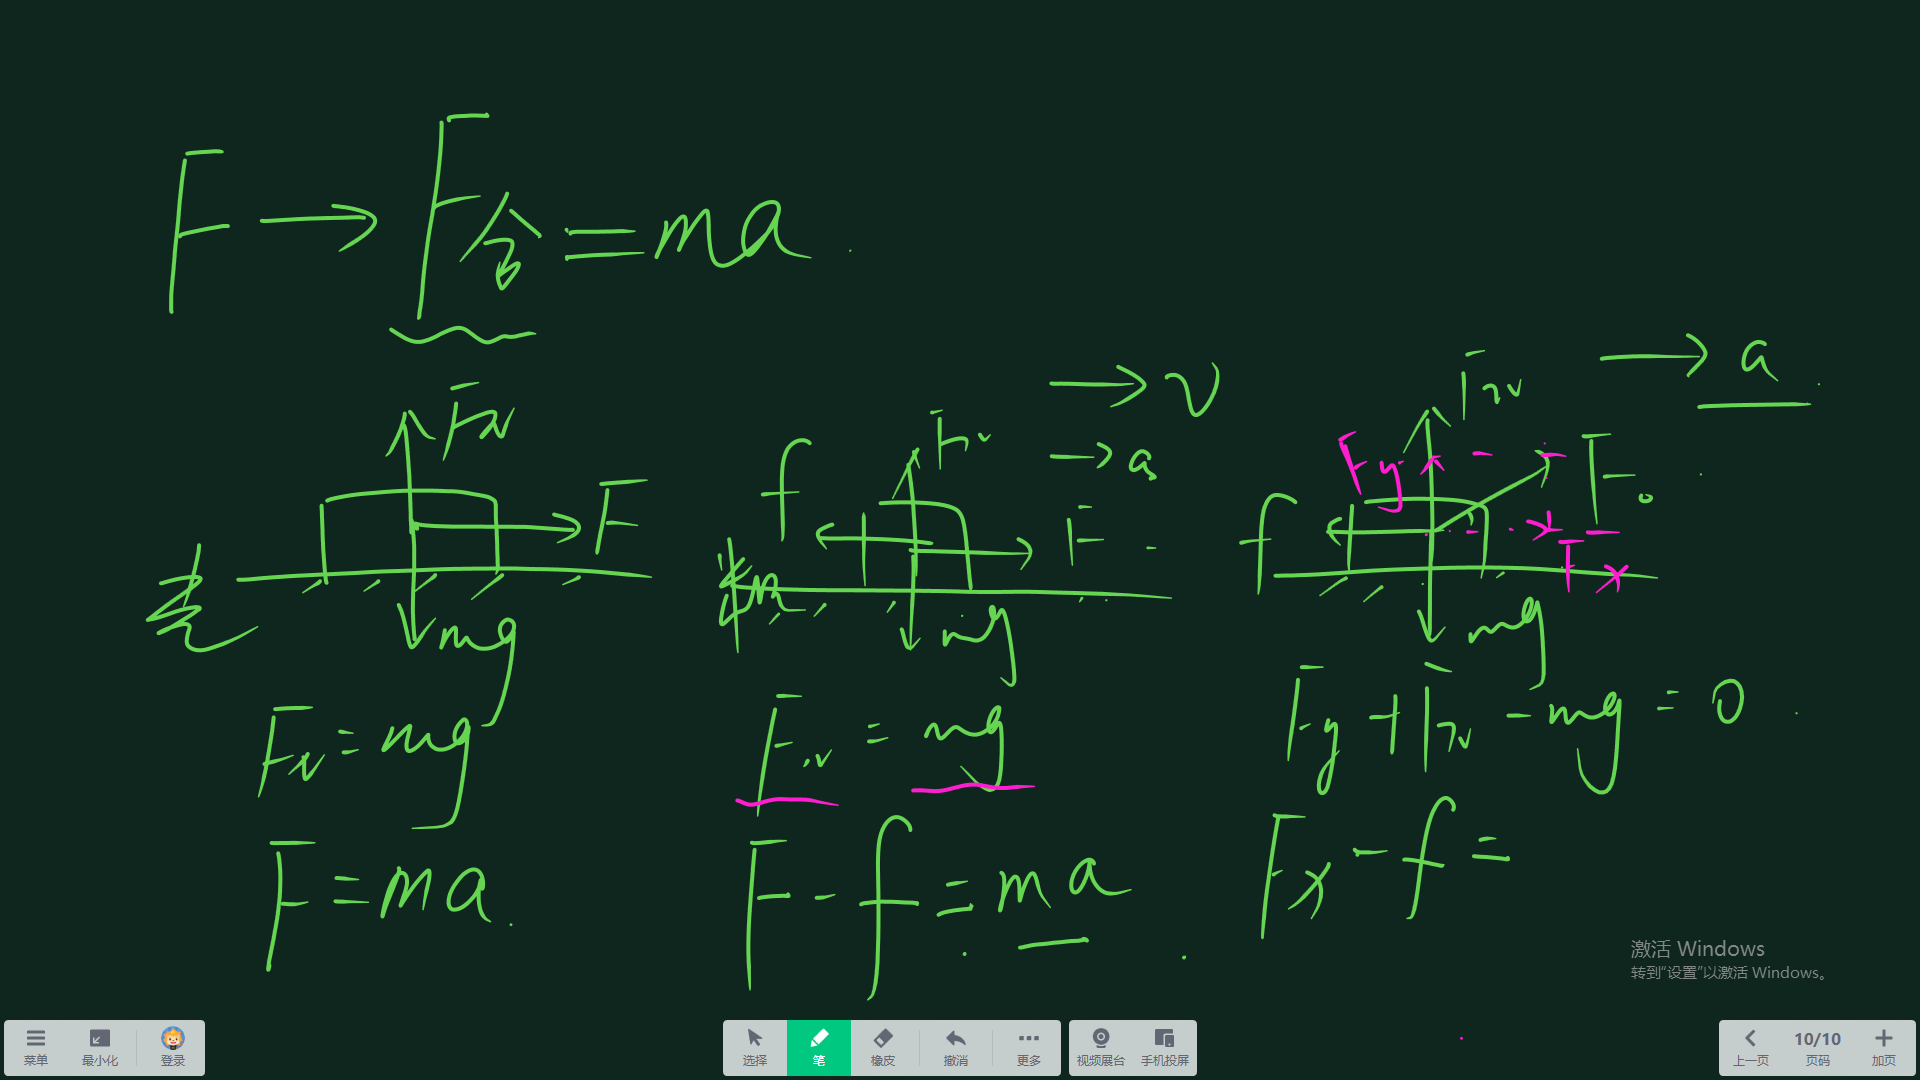 F → F合 = ma
→ v
→ a
→ a
F_N
F
mg
f
F_N
F
mg
F_N
F_y
F
f
F_x
mg
F_N = mg
F = ma
F_N = mg
F - f = ma
F_y + F_N - mg = 0
F_x - f =
激活 Windows
转到“设置”以激活 Windows。
菜单
最小化
登录
选择
笔
橡皮
撤消
更多
视频展台
手机投屏
上一页
10/10
页码
加页